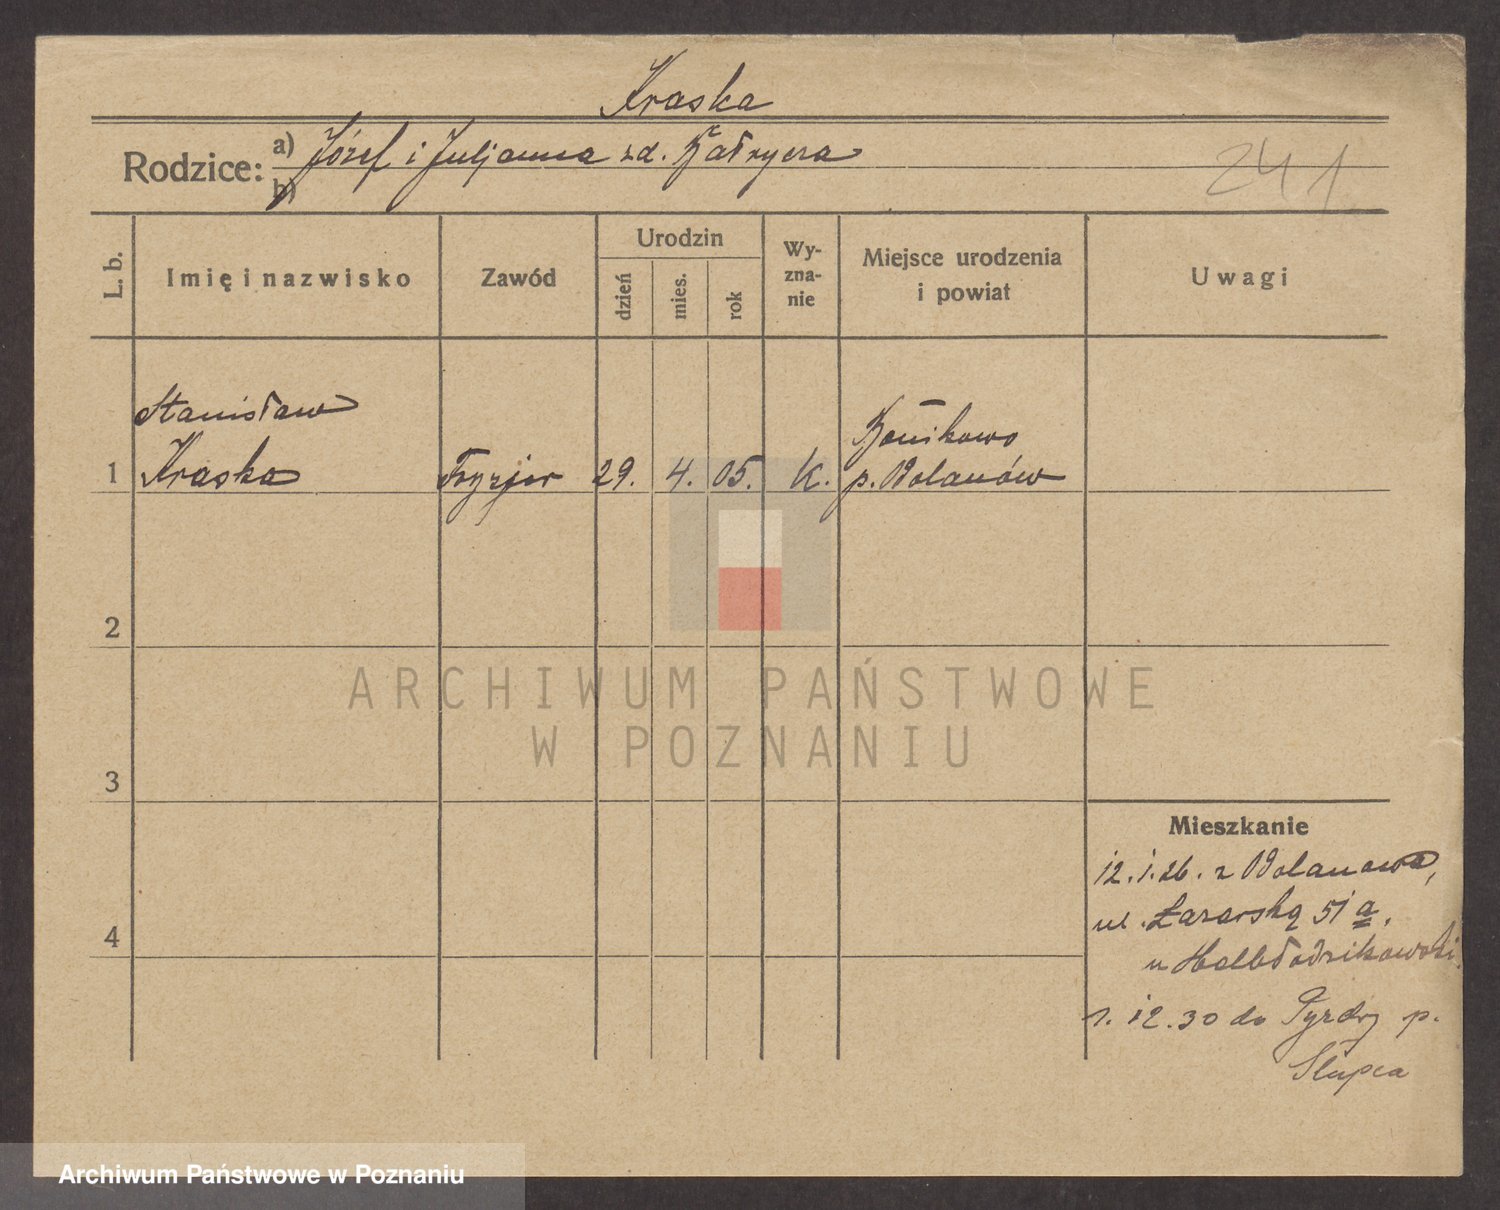 Kraska
Rodzice: a) Józef i Juljanna zd.
b)
241
L. b.
Imię i nazwisko
Zawód
Urodzin
dzień
mies.
rok
Wy-
zna-
nie
Miejsce urodzenia
i powiat
Uwagi
Stanisław
1 Kraska Fryzjer 29. 4. 05. K. p. Wolanów
2
3
4
Mieszkanie
12.1.26. z Wolanowa,
ul. Łazarską 51 a.
u
1. 12. 30 do Pyzdry p.
Słupca
ARCHIWUM PAŃSTWOWE
W POZNANIU
Archiwum Państwowe w Poznaniu